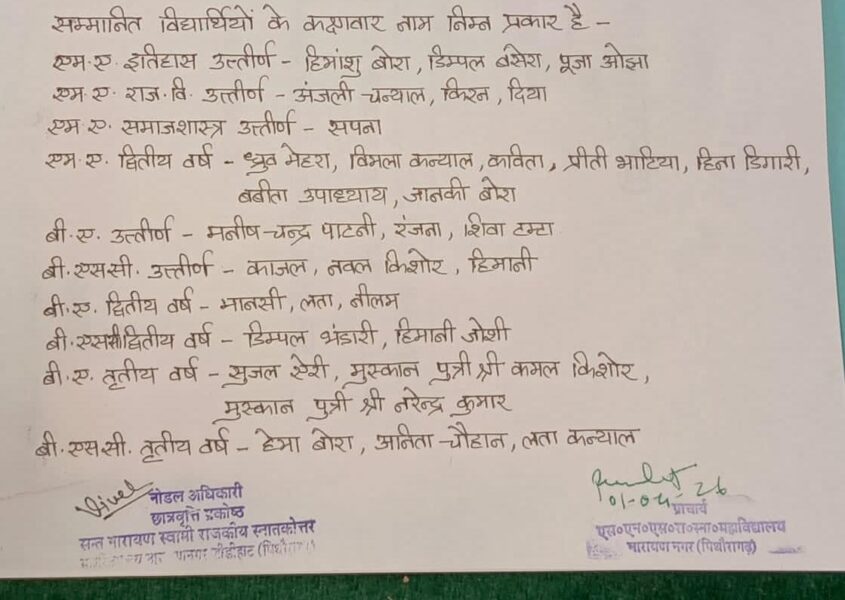 सम्मानित विद्यार्थियों के कक्षावार नाम निम्न प्रकार है -
एम.ए. इतिहास उत्तीर्ण - हिमांशु बोरा, डिम्पल बसेरा, पूजा ओझा
एम.ए. राज.वि. उत्तीर्ण - अंजली चन्याल, किरन, दिया
एम.ए. समाजशास्त्र उत्तीर्ण - सपना
एम.ए. द्वितीय वर्ष - ध्रुव मेहरा, विमला कन्याल, कविता, प्रीती भाटिया, हिना डिगारी,
बबीता उपाध्याय, जानकी बोरा
बी.ए. उत्तीर्ण - मनीष चन्द्र पाटनी, रंजना, शिवा टम्टा
बी.एससी. उत्तीर्ण - काजल, नवल किशोर, हिमानी
बी.ए. द्वितीय वर्ष - मानसी, लता, नीलम
बी.एससी द्वितीय वर्ष - डिम्पल भंडारी, हिमानी जोशी
बी.ए. तृतीय वर्ष - सुजल ऐरी, मुस्कान पुत्री श्री कमल किशोर,
मुस्कान पुत्री श्री नरेन्द्र कुमार
बी.एससी. तृतीय वर्ष - हेमा बोरा, अनिता चौहान, लता कन्याल
नोडल अधिकारी
छात्रवृत्ति प्रकोष्ठ
सन्त नारायण स्वामी राजकीय स्नातकोत्तर
डीडीहाट (पिथौरागढ़)
01-04-26
प्राचार्य
एस०एन०एस०रा०स्ना०महाविद्यालय
नारायण नगर (पिथौरागढ़)